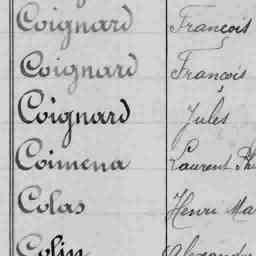 Coignard François
Coignard François
Coignard Jules
Coimena Laurent
Colas Henri
Colin